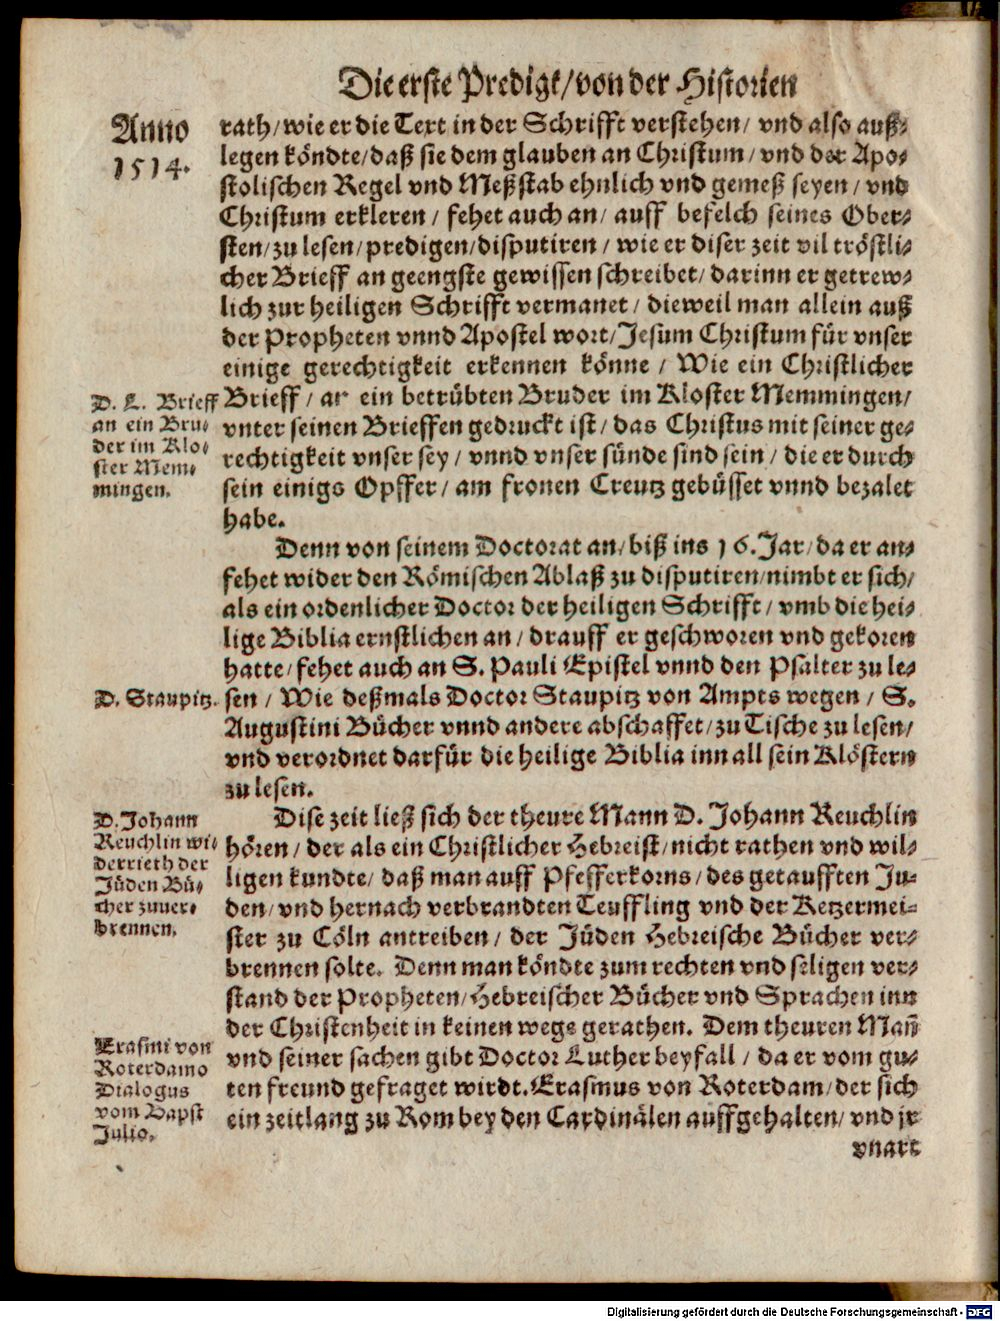 Die erste Predigt/von der Historien
Anno
1514.
rath/wie er die Text in der Schrifft verstehen/ vnd also auß-
legen köndte/daß sie dem glauben an Christum/vnd der Apo-
stolischen Regel vnd Meßstab ehnlich vnd gemeß seyen/ vnd
Christum erkleren/ fehet auch an/ auff befelch seines Ober-
sten/zu lesen/predigen/disputiren/ wie er diser zeit vil tröstli-
cher Brieff an geengste gewissen schreibet/darinn er getrew-
lich zur heiligen Schrifft vermanet/ dieweil man allein auß
der Propheten vnnd Apostel wort/Jesum Christum für vnser
einige gerechtigkeit erkennen könne/ Wie ein Christlicher
D. L. Brieff
an ein Bru-
der im Klo-
ster Mem-
mingen.
Brieff/ an ein betrübten Bruder im Kloster Memmingen/
vnter seinen Brieffen gedruckt ist/ das Christus mit seiner ge-
rechtigkeit vnser sey/ vnnd vnser sünde sind sein/ die er durch
sein einigs Opffer/ am fronen Creutz gebüsset vnnd bezalet
habe.
Denn von seinem Doctorat an/biß ins 16.Jar/da er an-
fehet wider den Römischen Ablaß zu disputiren/nimbt er sich/
als ein ordenlicher Doctor der heiligen Schrifft/ vmb die hei-
lige Biblia ernstlichen an/ drauff er geschworen vnd gekoren
hatte/fehet auch an S. Pauli Epistel vnnd den Psalter zu le-
D. Staupitz.
sen/ Wie deßmals Doctor Staupitz von Ampts wegen/ S.
Augustini Bücher vnnd andere abschaffet/zu Tische zu lesen/
vnd verordnet darfür die heilige Biblia inn all sein Klöstern
zu lesen.
D. Johann
Reuchlin wi-
derrieth der
Jüden Bü-
cher zuuer-
brennen.
Dise zeit ließ sich der theure Mann D. Johann Reuchlin
hören/ der als ein Christlicher Hebreist/nicht rathen vnd wil-
ligen kundte/ daß man auff Pfefferkorns/des getaufften Jü-
den/vnd hernach verbrandten Teuffling vnd der Ketzermei-
ster zu Cöln antreiben/ der Jüden Hebreische Bücher ver-
brennen solte. Denn man köndte zum rechten vnd seligen ver-
stand der Propheten/Hebreischer Bücher vnd Sprachen inn
der Christenheit in keinen wege gerathen. Dem theuren Mañ
Erasmi von
Roterdamo
Dialogus
vom Bapst
Julio.
vnd seiner sachen gibt Doctor Luther beyfall/ da er vom gu-
ten freund gefraget wirdt. Erasmus von Roterdam/der sich
ein zeitlang zu Rom bey den Cardinälen auffgehalten/ vnd jr
vnart
Digitalisierung gefördert durch die Deutsche Forschungsgemeinschaft - DFG